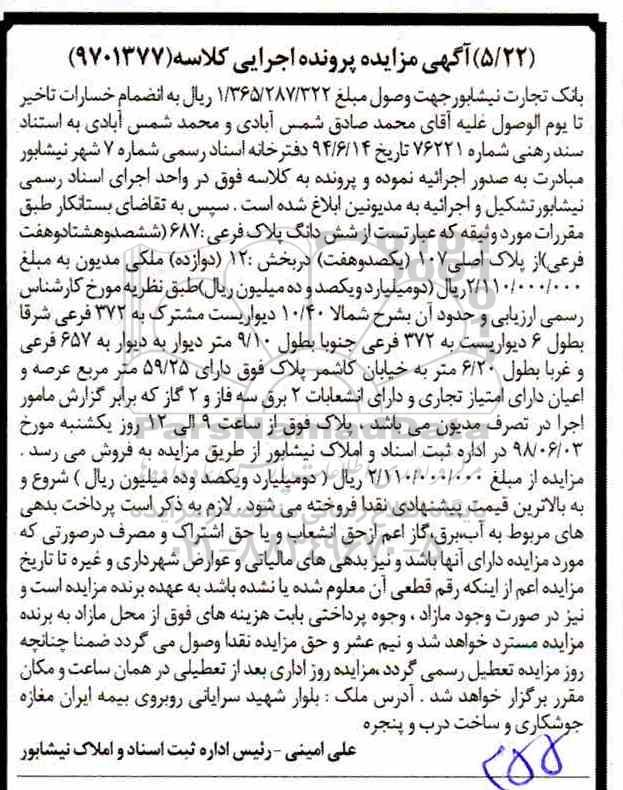 (۵/۲۲)آگهی مزایده پرونده اجرایی کلاسه(۹۷۰۱۳۷۷)
بانک تجارت نیشابورجهت وصول مبلغ ۱/۳۶۵/۲۸۷/۳۲۲ ریال به انضمام خسارات تاخیر
تا یوم الوصول علیه آقای محمد صادق شمس آبادی و محمد شمس آبادی به استناد
سند رهنی شماره ۷۶۲۲۱ تاریخ ۹۴/۶/۱۴ دفترخانه اسناد رسمی شماره ۷ شهر نیشابور
مبادرت به صدور اجرائیه نموده و پرونده به کلاسه فوق در واحد اجرای اسناد رسمی
نیشابورتشکیل و اجرائیه به مدیونین ابلاغ شده است . سپس به تقاضای بستانکار طبق
مقررات مورد وثیقه که عبارتست از شش دانگ پلاک فرعی :۶۸۷ (ششصدوهشتادوهفت
فرعی)از پلاک اصلی۱۰۷ (یکصدوهفت) دربخش :۱۲ (دوازده) ملکی مدیون به مبلغ
۲/۱۱۰/۰۰۰/۰۰۰ریال (دومیلیارد ویکصد و ده میلیون ریال)طبق نظریه مورخ کارشناس
رسمی ارزیابی و حدود آن بشرح شمالا ۱۰/۴۰ دیواریست مشترک به ۳۷۲ فرعی شرقا
بطول ۶ دیواریست به ۳۷۲ فرعی جنوبا بطول ۹/۱۰ متر دیوار به دیوار به ۶۵۷ فرعی
و غربا بطول ۶/۲۰ متر به خیابان کاشمر پلاک فوق دارای ۵۹/۲۵ متر مربع عرصه و
اعیان دارای امتیاز تجاری و دارای انشعابات ۲ برق سه فاز و ۲ گاز که برابر گزارش مامور
اجرا در تصرف مدیون می باشد . پلاک فوق از ساعت ۹ الی ۱۲ روز یکشنبه مورخ
۹۸/۰۶/۰۳ در اداره ثبت اسناد و املاک نیشابور از طریق مزایده به فروش می رسد .
مزایده از مبلغ ۲/۱۱۰/۰۰۰/۰۰۰ ریال ( دومیلیارد ویکصد وده میلیون ریال ) شروع و
به بالاترین قیمت پیشنهادی نقدا فروخته می شود . لازم به ذکر است پرداخت بدهی
های مربوط به آب،برق،گاز اعم ازحق انشعاب و یا حق اشتراک و مصرف درصورتی که
مورد مزایده دارای آنها باشد و نیز بدهی های مالیاتی و عوارض شهرداری و غیره تا تاریخ
مزایده اعم از اینکه رقم قطعی آن معلوم شده یا نشده باشد به عهده برنده مزایده است و
نیز در صورت وجود مازاد ، وجوه پرداختی بابت هزینه های فوق از محل مازاد به برنده
مزایده مسترد خواهد شد و نیم عشر و حق مزایده نقدا وصول می گردد ضمنا چنانچه
روز مزایده تعطیل رسمی گردد ،مزایده روز اداری بعد از تعطیلی در همان ساعت و مکان
مقرر برگزار خواهد شد . آدرس ملک : بلوار شهید سرایانی روبروی بیمه ایران مغازه
جوشکاری و ساخت درب و پنجره
علی امینی -رئیس اداره ثبت اسناد و املاک نیشابور